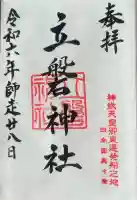 奉拝
神武天皇御東遷發船之地
立磐神社
令和六年師走廿八日